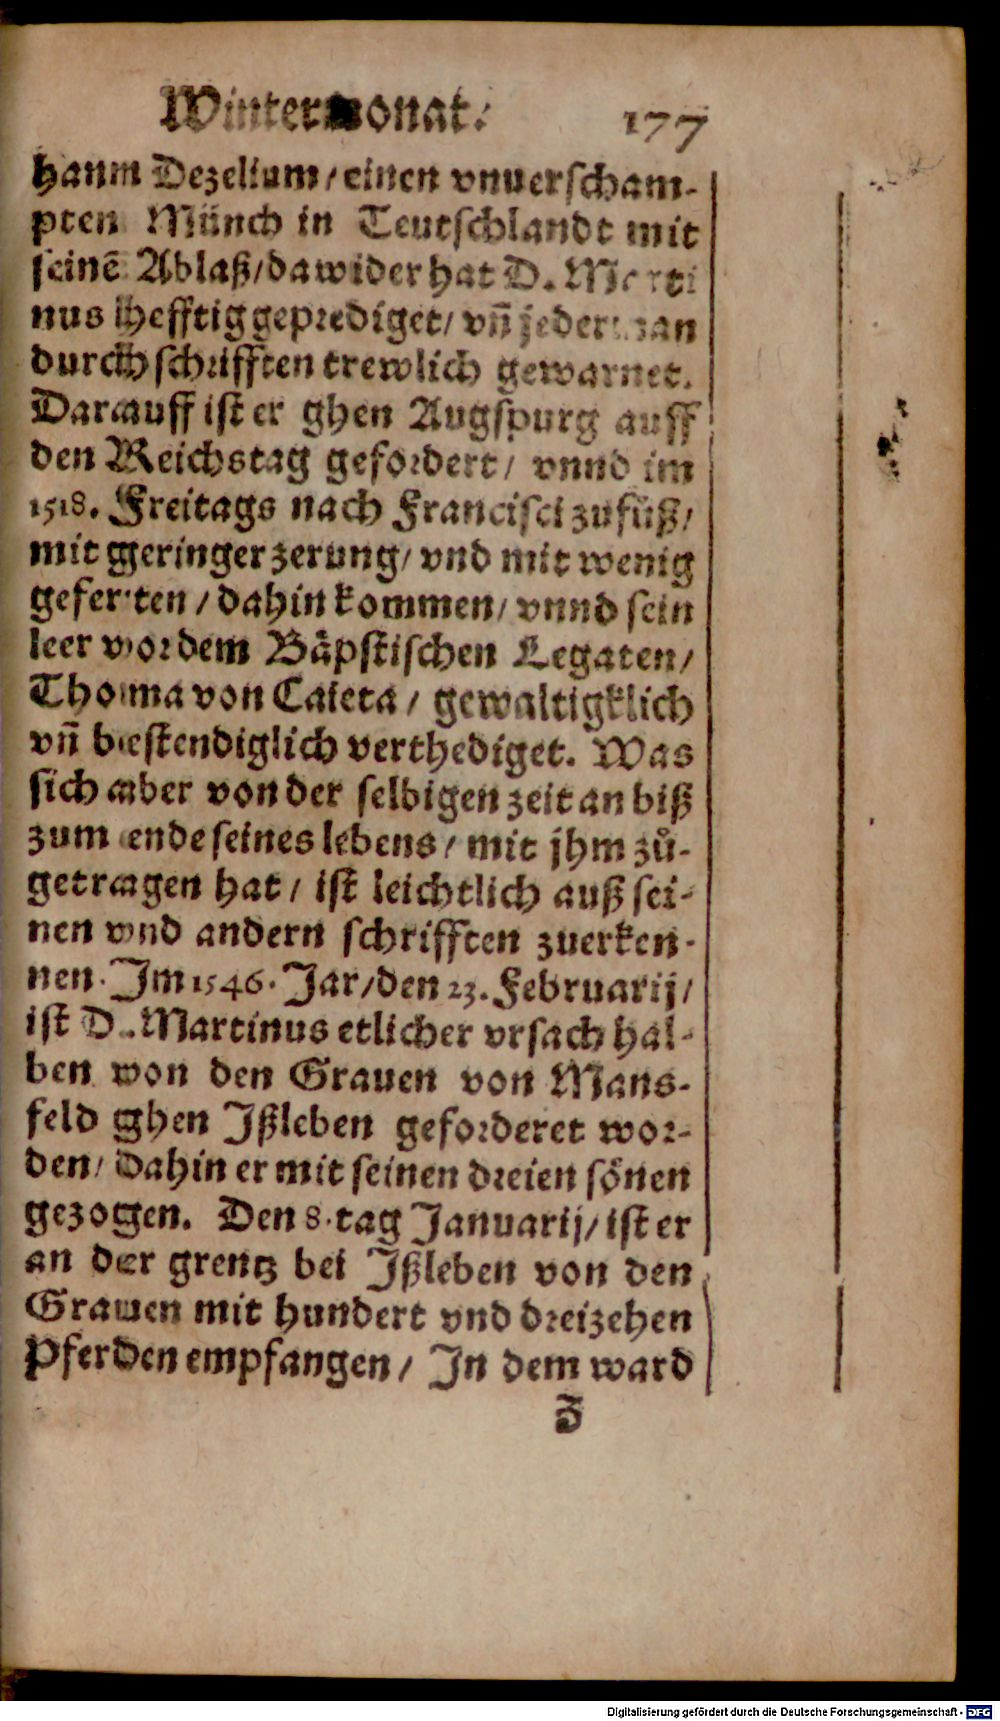 Wintermonat. 177
hann Dezelium / einen vnuerscham-
pten Münch in Teutschlandt mit
seinē Ablaß / dawider hat D. Marti
nus hefftig geprediget / vñ jederman
durch schrifften trewlich gewarnet.
Darauff ist er ghen Augspurg auff
den Reichstag gefordert / vnnd im
1518. Freitags nach Francisci zu fůß /
mit geringer zerung / vnd mit wenig
geferten / dahin kommen / vnnd sein
leer vor dem Bäpstischen Legaten /
Thoma von Caieta / gewaltigklich
vñ bestendiglich verthediget. Was
sich aber von der selbigen zeit an biß
zum ende seines lebens / mit jhm zů-
getragen hat / ist leichtlich auß sei-
nen vnd andern schrifften zuerken-
nen. Im 1546. Jar / den 23. Februarij /
ist D. Martinus etlicher vrsach hal-
ben von den Grauen von Mans-
feld ghen Ißleben geforderet wor-
den / dahin er mit seinen dreien sönen
gezogen. Den 8. tag Januarij / ist er
an der grentz bei Ißleben von den
Grauen mit hundert vnd dreizehen
Pferden empfangen / In dem ward
Z
Digitalisierung gefördert durch die Deutsche Forschungsgemeinschaft - DFG